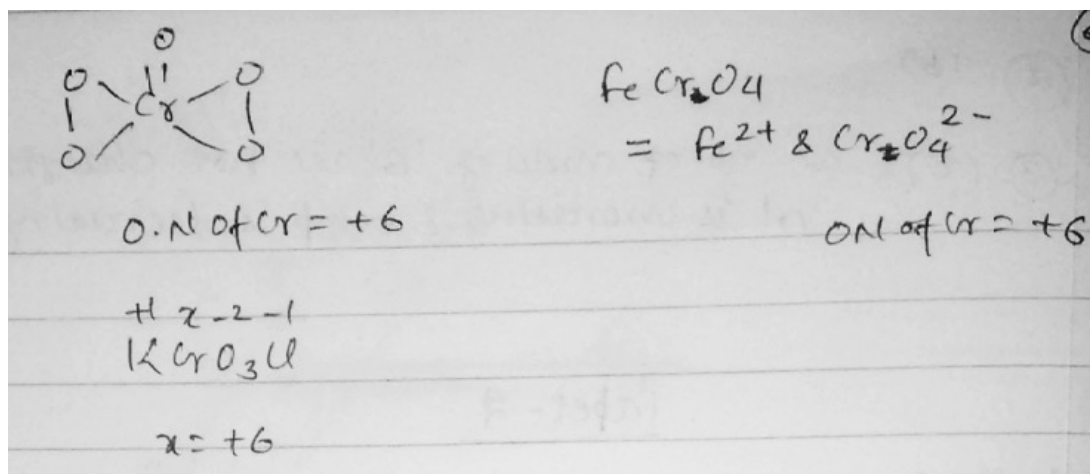 O
O Cr O
O O
O.N of Cr = +6
+1 x -2 -1
KCrO₃Cl
x = +6
FeCr₂O₄
= Fe²⁺ & Cr₂O₄²⁻
ON of Cr = +6